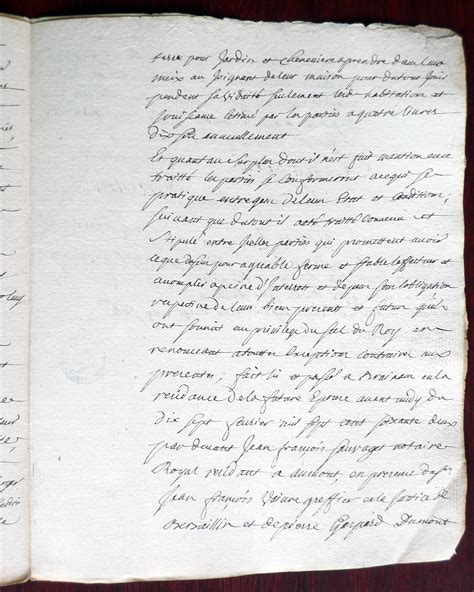 terre pour Jardin et cheneviere aprendre dans leur
meix au Joignant de leur maison pour du tout Jouir
pendant sa viduité seulement lad habitation et
Jouissance estimé par les parties a quatre livres
dix sols annuellement
Et quant au Surplus dont il n'est fait mention au
traitté les parties se Conformeront a ce qui se
pratique entre gens de leur Etat et Condition;
Suivant que du tout il a esté traitté Convenu et
Stipulé entre parties qui promettent avoir
le que dessus pour agreable ferme et stable
accomplir a peine d'Interrets et depens sous l'obligation
respective de leurs biens presents et futurs qu'ils
ont soumis au privilege du scel du Roy en
renoncant a toutes Exceptions contraires aux
presentes, fait lu et passé a en la
residance de la future Epouse avant midy du
dix sept fevrier mil sept cent soixante deux
par devant Jean françois Sauvaget notaire
Royal residant a aumont, en presence de
Jean françois greffier en la Justice de
Bersaillin et de pierre Gaspard Dumont